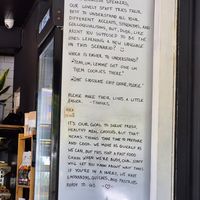 OUR LOVELY STAFF TRIES THEIR
BEST TO UNDERSTAND ALL YOUR
DIFFERENT ACCENTS, SYNONYMS, AND
COLLOQUIALISMS, BUT, DUDE, LIKE
ARENT YOU SUPPOSED TO BE THE
ONES LEARNING A NEW LANGUAGE
IN THIS SCENARIO?
WHICH IS EASIER TO UNDERSTAND?
LEMME GET ONE UH
THEM COOKIES THERE"
OR
"ONE COOKIE PLEASE."
PLEASE MAKE THEIR LIVES A LITTLE
EASIER. -THANKS,
IT'S OUR GOAL TO SERVE FRESH,
HEALTHY MEAL CHOICES, BUT THAT
MEANS THINGS TAKE TIME TO PREPARE
AND COOK. WE MOVE AS QUICKLY AS
WE CAN, BUT THIS ISN'T A FAST FOOD
CHAIN. WHEN WE'RE BUSY, OUR STAFF
WILL LET YOU KNOW ABOUT WAIT TIMES.
IF YOU'RE IN A HURRY, WE HAVE
EMPANADAS, QUICHES, AND PASTRIES
READY TO GO.